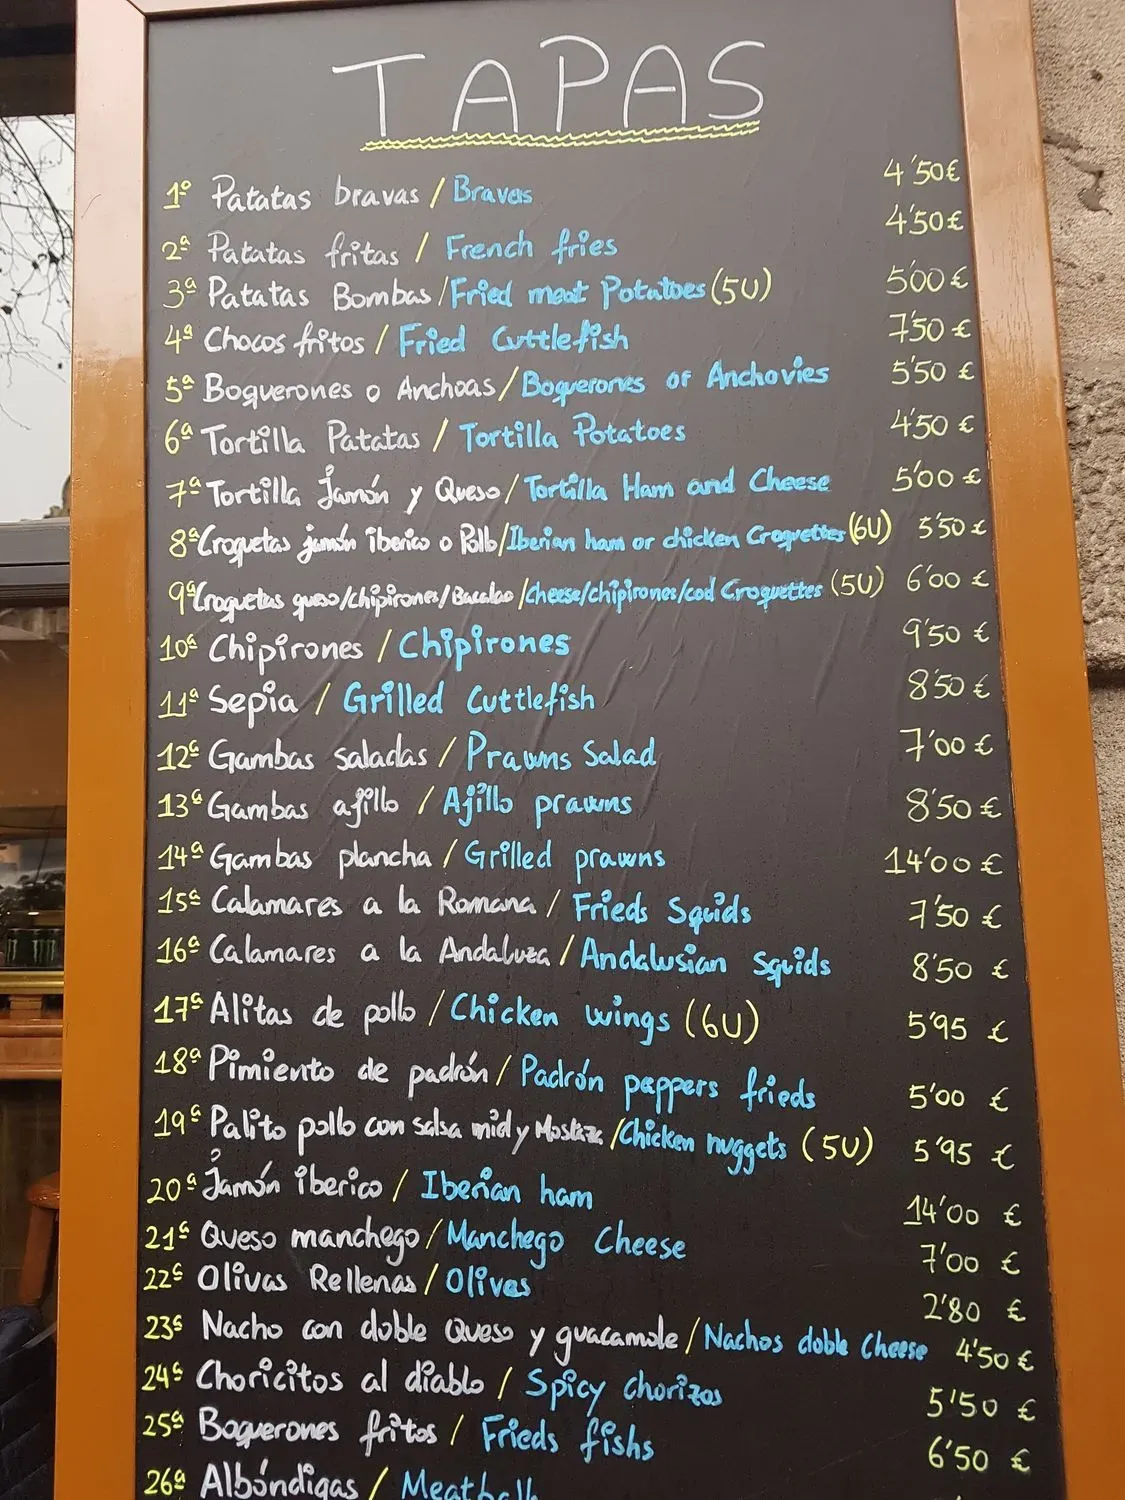 TAPAS
1º Patatas bravas / Bravas 4'50€
2ª Patatas fritas / French fries 4'50€
3ª Patatas Bombas / Fried meat Potatoes (5U) 5'00€
4ª Chocos fritos / Fried Cuttlefish 7'50€
5ª Boquerones o Anchoas / Boquerones or Anchovies 5'50€
6ª Tortilla Patatas / Tortilla Potatoes 4'50€
7ª Tortilla Jamón y Queso / Tortilla Ham and Cheese 5'00€
8ª Croquetas jamón iberico o Pollo / Iberian ham or chicken Croquettes (6U) 5'50€
9ª Croquetas queso/chipirones/Bacalao / Cheese/chipirones/cod Croquettes (5U) 6'00€
10ª Chipirones / Chipirones 9'50€
11ª Sepia / Grilled Cuttlefish 8'50€
12ª Gambas saladas / Prawns Salad 7'00€
13ª Gambas ajillo / Ajillo prawns 8'50€
14ª Gambas plancha / Grilled prawns 14'00€
15ª Calamares a la Romana / Frieds Squids 7'50€
16ª Calamares a la Andaluza / Andalusian Squids 8'50€
17ª Alitas de pollo / Chicken wings (6U) 5'95€
18ª Pimiento de padrón / Padrón peppers frieds 5'00€
19ª Palito pollo con salsa mid y Mostaza / Chicken nuggets (5U) 5'95€
20ª Jamón iberico / Iberian ham 14'00€
21ª Queso manchego / Manchego Cheese 7'00€
22ª Olivas Rellenas / Olives 2'80€
23ª Nacho con doble Queso y guacamole / Nachos doble Cheese 4'50€
24ª Choricitos al diablo / Spicy chorizos 5'50€
25ª Boquerones fritos / Frieds fishs 6'50€
26ª Albóndigas / Meatball